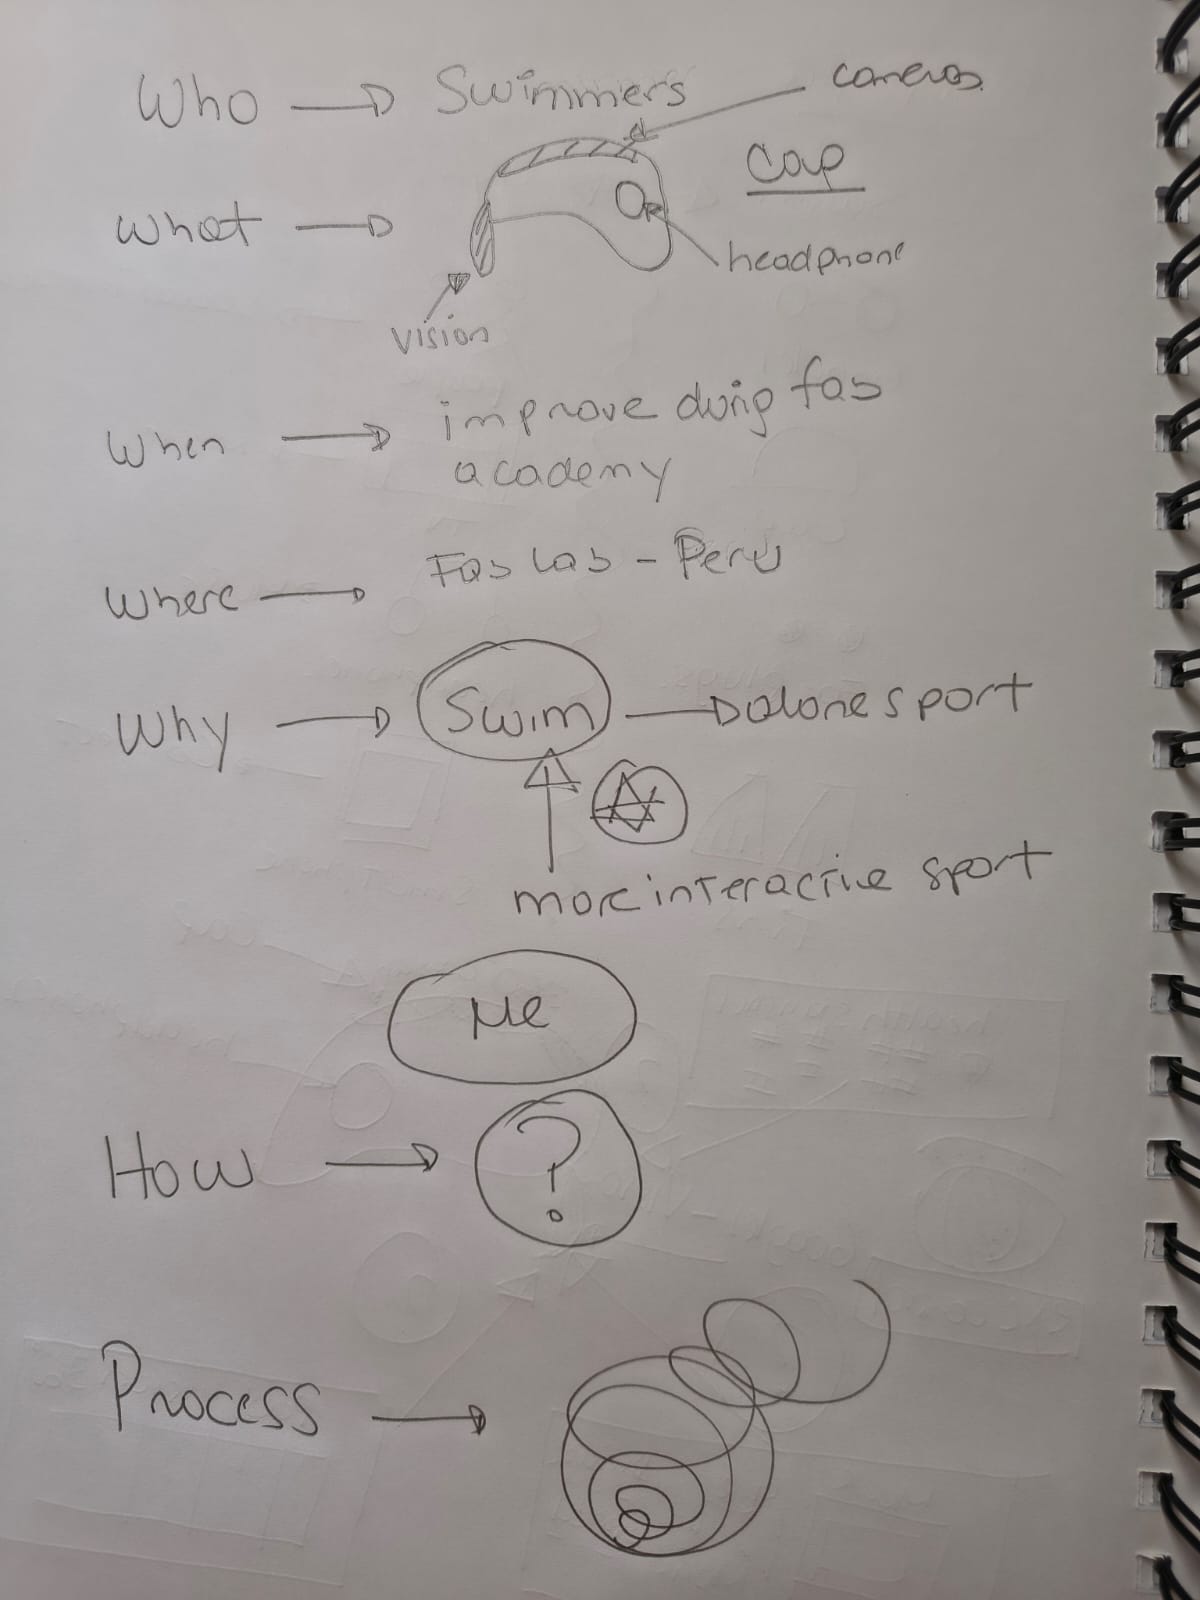 Who → Swimmers
cameras
Cap
What →
headphone
vision
When → improve durig fab
academy
Where → Fab Lab - Peru
Why → Swim → alone sport
more interactive sport
Me
How → ?
Process →